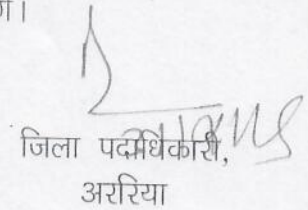 जिला पदाधिकारी,
अररिया